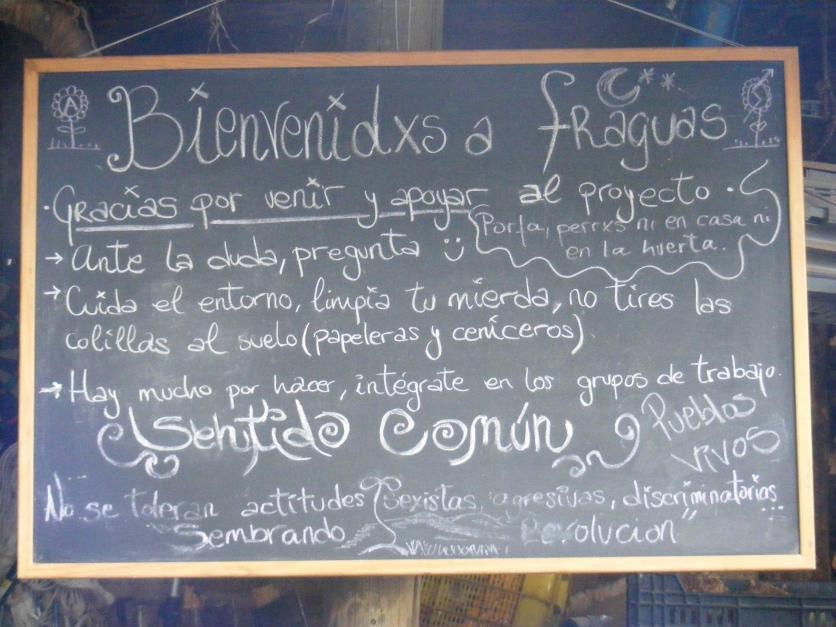 A
Bienvenidxs a fRaguas
· Gracias por venir y apoyar al proyecto ·
Porfa, perrxs ni en casa ni
en la huerta.
→ Ante la duda, pregunta :)
→ Cuida el entorno, limpia tu mierda, no tires las
colillas al suelo (papeleras y ceniceros)
→ Hay mucho por hacer, intégrate en los grupos de trabajo.
Sentido Común
Pueblos
vivos
No se toleran actitudes sexistas, agresivas, discriminatorias...
Sembrando Revolucion"